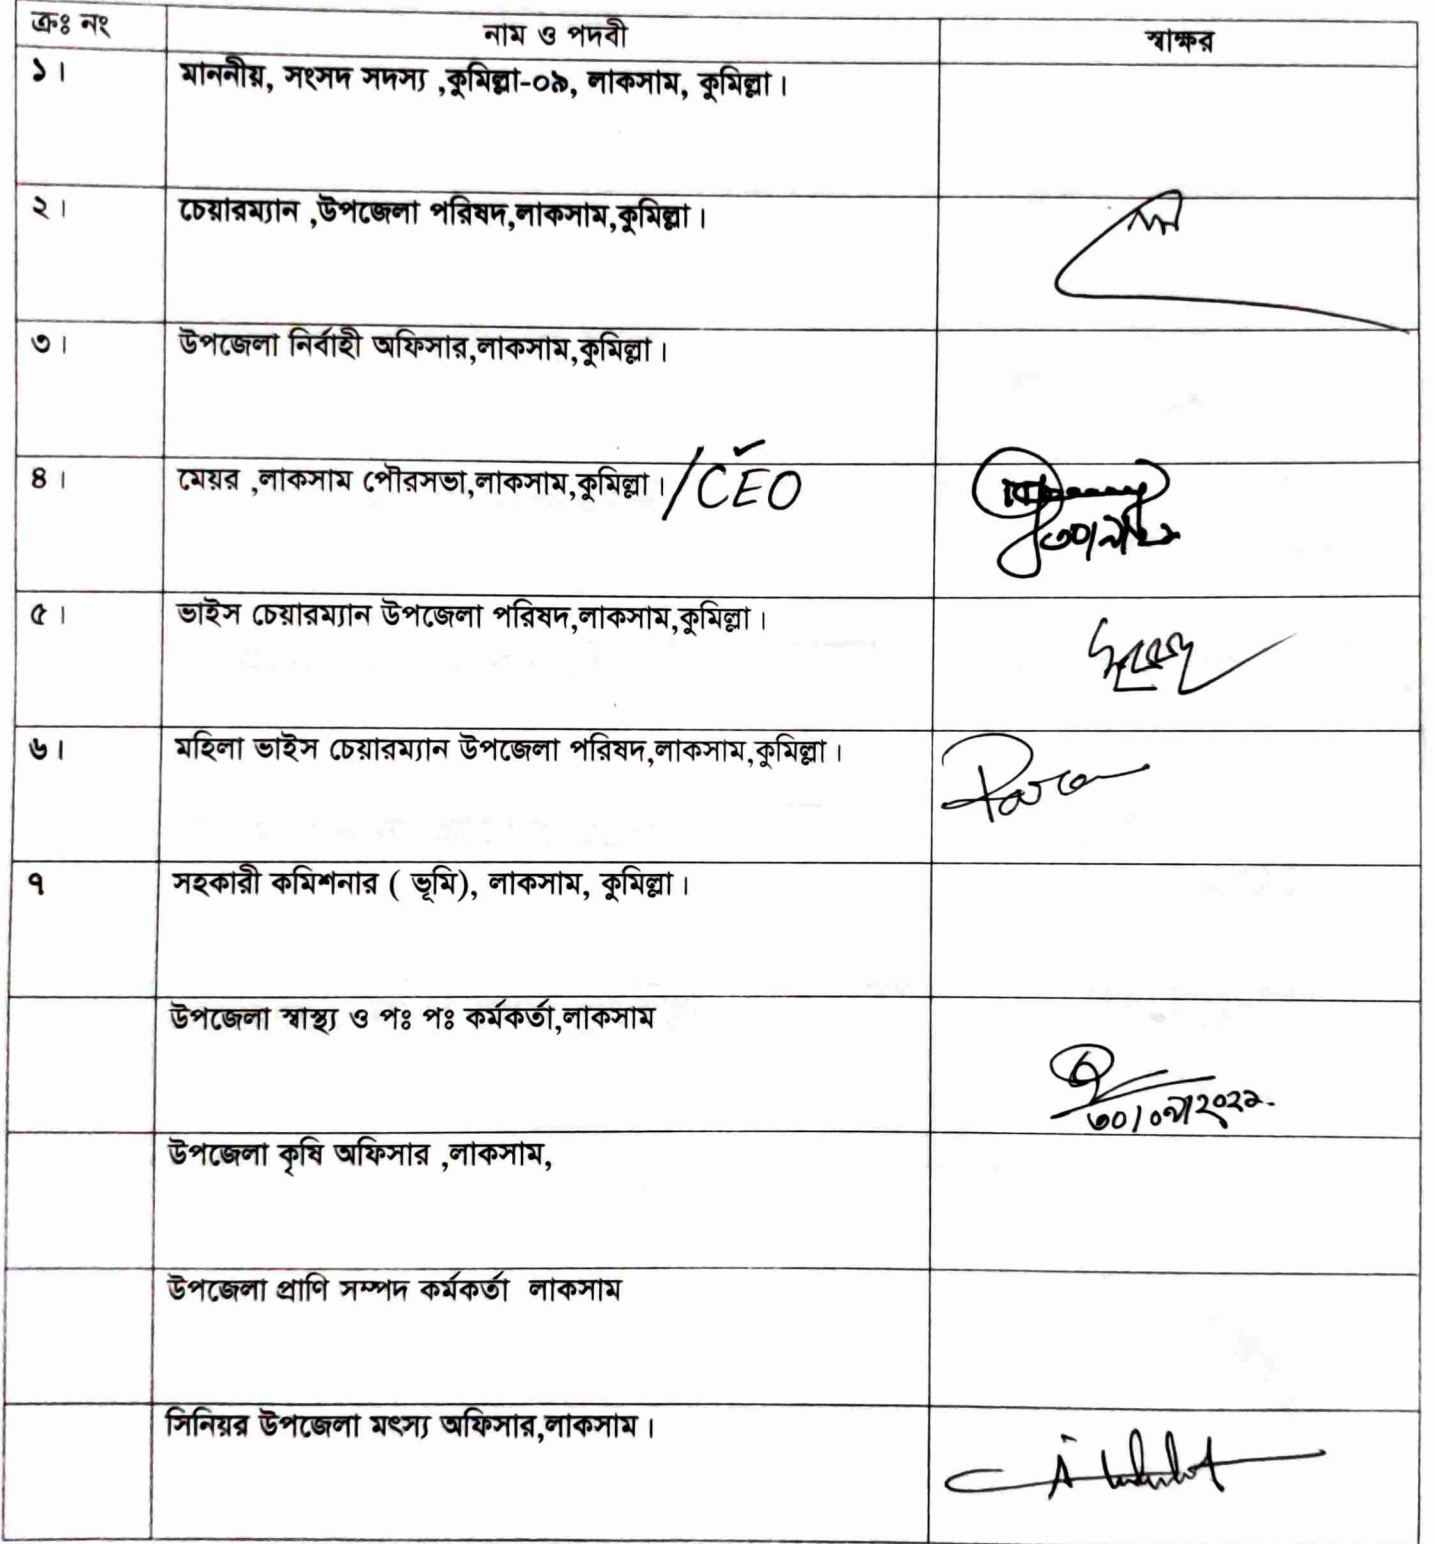 ক্রঃ নং নাম ও পদবী স্বাক্ষর
১। মাননীয়, সংসদ সদস্য ,কুমিল্লা-০৯, লাকসাম, কুমিল্লা।
২। চেয়ারম্যান ,উপজেলা পরিষদ,লাকসাম,কুমিল্লা।
৩। উপজেলা নির্বাহী অফিসার,লাকসাম,কুমিল্লা।
৪। মেয়র ,লাকসাম পৌরসভা,লাকসাম,কুমিল্লা। /CEO
৫। ভাইস চেয়ারম্যান উপজেলা পরিষদ,লাকসাম,কুমিল্লা।
৬। মহিলা ভাইস চেয়ারম্যান উপজেলা পরিষদ,লাকসাম,কুমিল্লা।
৭ সহকারী কমিশনার ( ভূমি), লাকসাম, কুমিল্লা।
উপজেলা স্বাস্থ্য ও পঃ পঃ কর্মকর্তা,লাকসাম
৩০/০৯/২০২২.
উপজেলা কৃষি অফিসার ,লাকসাম,
উপজেলা প্রাণি সম্পদ কর্মকর্তা লাকসাম
সিনিয়র উপজেলা মৎস্য অফিসার,লাকসাম।